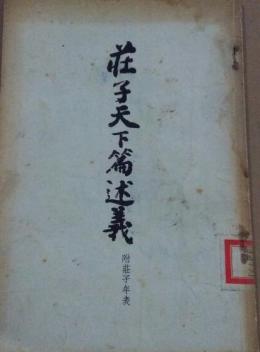 莊子天下篇述義
附莊子年表